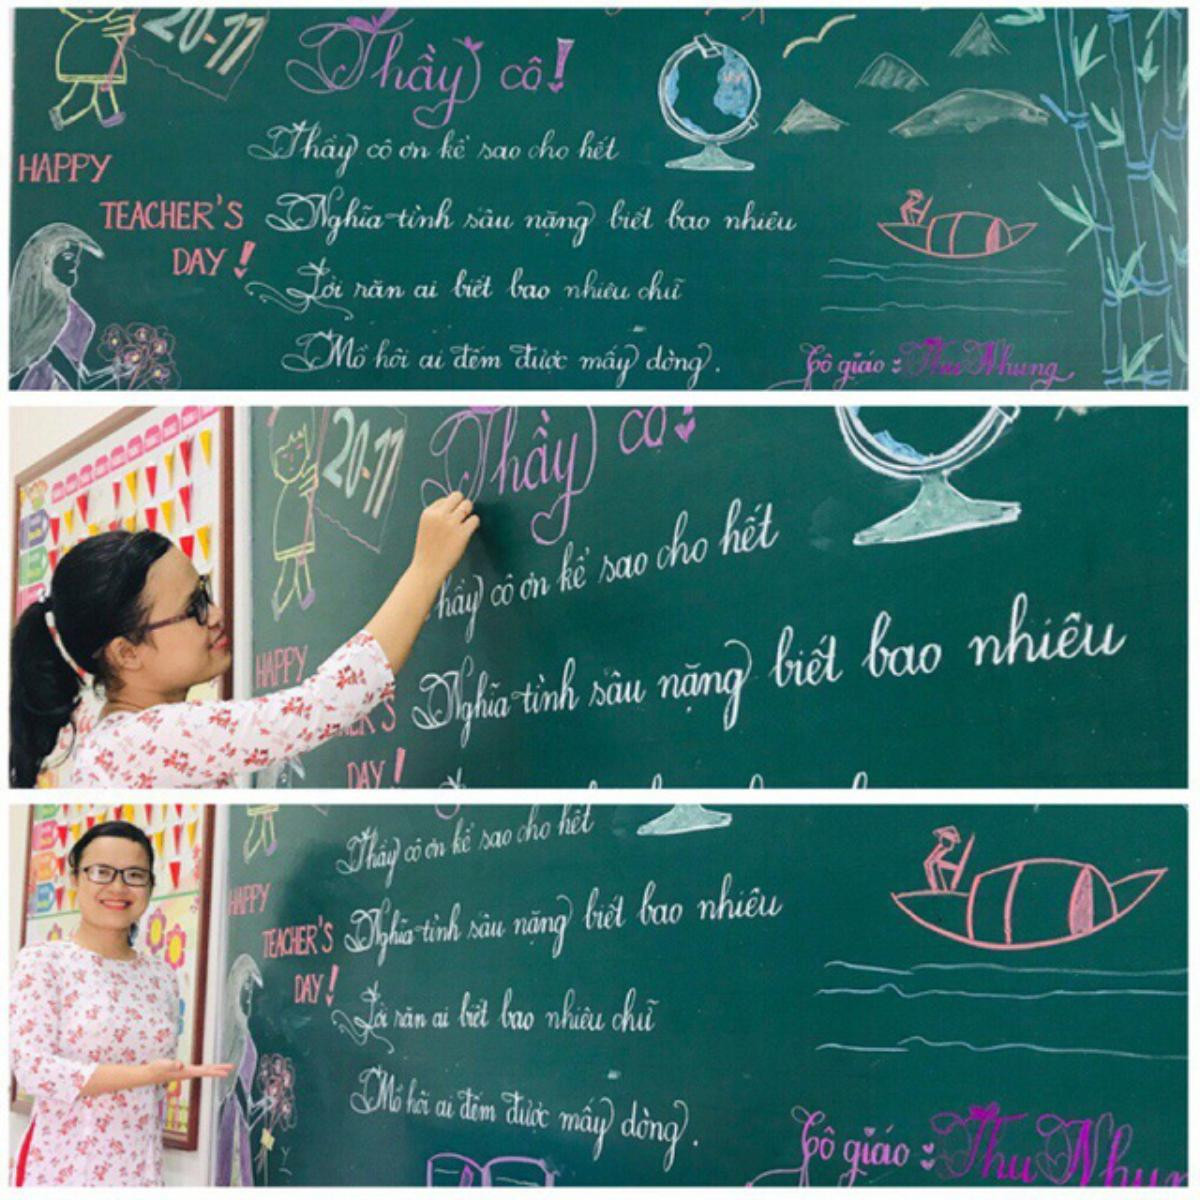 20-11
Thầy cô!
HAPPY
TEACHER'S
DAY!
Thầy cô ơn kể sao cho hết
Nghĩa tình sâu nặng biết bao nhiêu
Lời răn ai biết bao nhiêu chữ
Mồ hôi ai đếm được mấy dòng.
Cô giáo: Thu Nhung
20-11
Thầy cô!
hầy cô ơn kể sao cho hết
HAPPY
Nghĩa tình sâu nặng biết bao nhiêu
ER'S
DAY!
Thầy cô ơn kể sao cho hết
HAPPY
TEACHER'S
DAY!
Nghĩa tình sâu nặng biết bao nhiêu
Lời răn ai biết bao nhiêu chữ
Mồ hôi ai đếm được mấy dòng.
Cô giáo: Thu Nhun